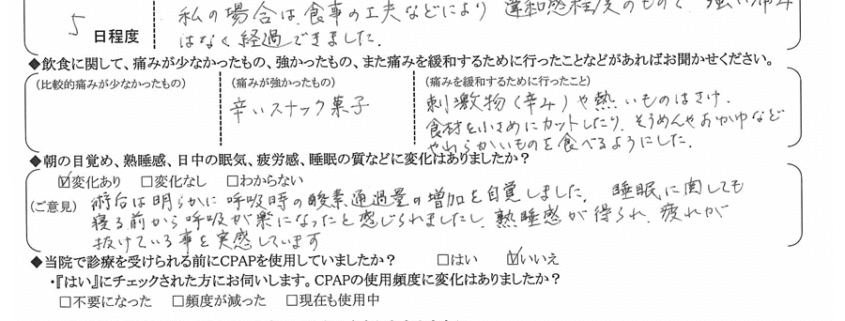 私の場合は、食事の工夫などにより 違和感程度のもので、強い痛み
5 日程度
はなく経過できました.
◆飲食に関して、痛みが少なかったもの、強かったもの、また痛みを緩和するために行ったことなどがあればお聞かせください。
(比較的痛みが少なかったもの) (痛みが強かったもの) (痛みを緩和するために行ったこと)
辛いスナック菓子
刺激物(辛み)や熱いものはさけ.
食材を小さめにカットしたり、そうめんやおかゆなど
やわらかいものを食べるようにした.
◆朝の目覚め、熟睡感、日中の眠気、疲労感、睡眠の質などに変化はありましたか?
☑変化あり □変化なし □わからない
(ご意見) 術后は明らかに呼吸時の酸素通過量の増加を自覚しました. 睡眠に関しても
寝る前から呼吸が楽になったと感じられましたし、熟睡感が得られ、疲れが
抜けている事を実感しています
◆当院で診療を受けられる前にCPAPを使用していましたか? □はい ☑いいえ
・『はい』にチェックされた方にお伺いします。CPAPの使用頻度に変化はありましたか?
□不要になった □頻度が減った □現在も使用中